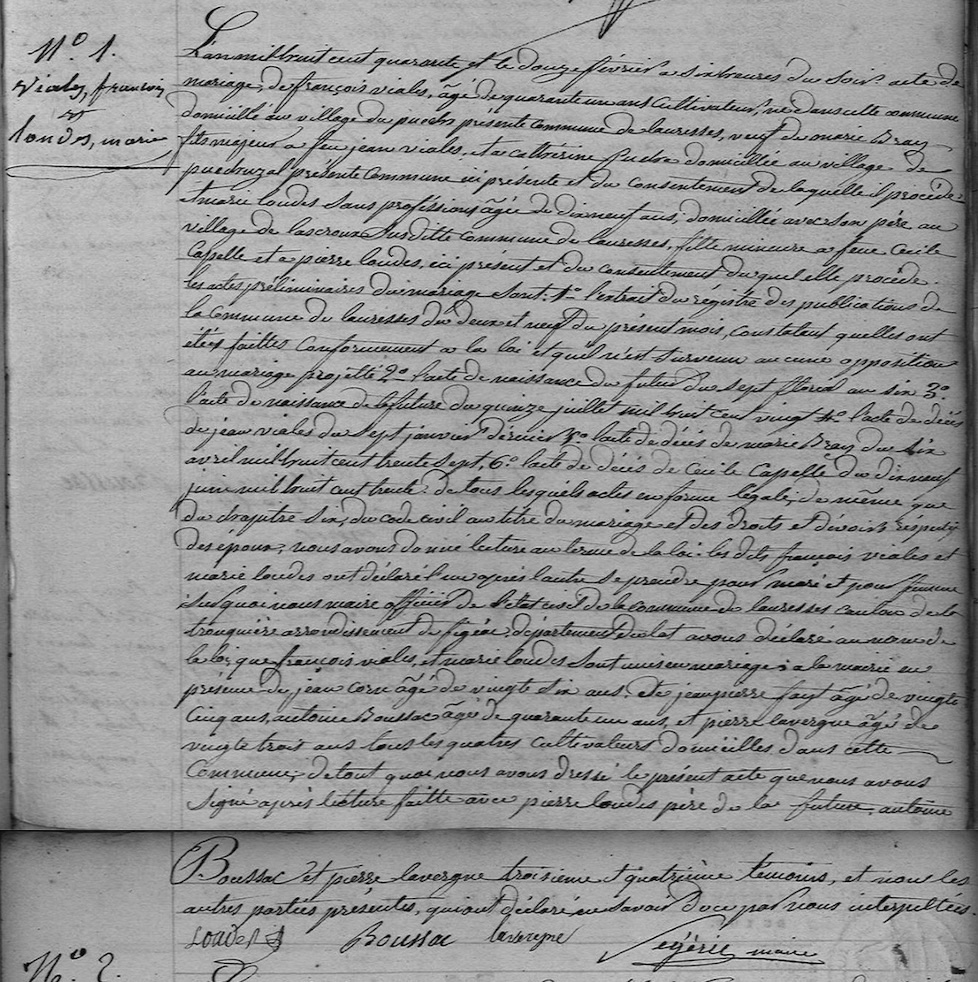 N.o 1.
Viales, francois
et
londes, marie
L'an mil huit cent quarante et le douze février a six heures du soir acte de
mariage, de françois viales, âgé de quarante un ans cultivateur, né dans cette commune
domicilié au village du puechs présente commune de lauresses, veuf de marie Bray
fils majeur a feu jean viales, et a cathérine domiciliée au village de
présente commune ici présente et du consentement de laquelle il procède
et marie loudes sans profession âgée de dixneuf ans, domiciliée avec son père au
village de lascroux susditte commune de lauresses, fille mineure a feue Cécile
Capelle et a pierre loudes, ici présent et du consentement du quel elle procède.
les actes préliminaires du mariage sont: 1o l'extrait du régistre des publications de
la commune de lauresses du deux et neuf du présent mois, constatent quelles ont
étées faittes conformément a la loi et quil n'est survenu aucune opposition
au mariage projetté 2o l'acte de naissance du futur du sept floréal an six 3o
l'acte de naissance de la future du quinze juillet mil huit cent vingt 4o l'acte de décès
de jean viales du sept janvier dernier 5o l'acte de décès de marie Bray du six
avril mil huit cent trente sept, 6o l'acte de décès de Cécile Capelle du dixneuf
juin mil huit cent trente: de tous lesquels actes en forme légale, de même que
du chapitre six, du code civil au titre du mariage et des droits et dévoirs respectifs
des époux, nous avons donné lecture au terme de la loi: les dits françois viales et
marie loudes ont déclaré l'un après l'autre se prendre pour mari et pour femme
sur quoi nous maire officier de l'état civil de la commune de lauresses canton de la
tronquière arrondissement de figéac, département du lot avons déclaré au nom de
la loi, que françois viales, et marie loudes sont unis en mariage: a la mairie en
présence de jean corn âgé de vingt six ans, de jeanpierre fayt âgé de vingt
cinq ans, antoine Boussac âgé de quarante un ans, et pierre lavergne âgé de
vingt trois ans tous les quatres cultivateurs domiciliés dans cette
Commune; de tout quoi nous avons dressé le présent acte que nous avons
signé après lecture faitte avec pierre loudes père de la future, antoine
Boussac et pierre lavergne troisième et quatrième témoins, et non les
autres parties présentes, qui ont déclaré ne savoir de ce par nous interpellées
LOUDES Boussac lavergne Ségéric maire
N.o 2.